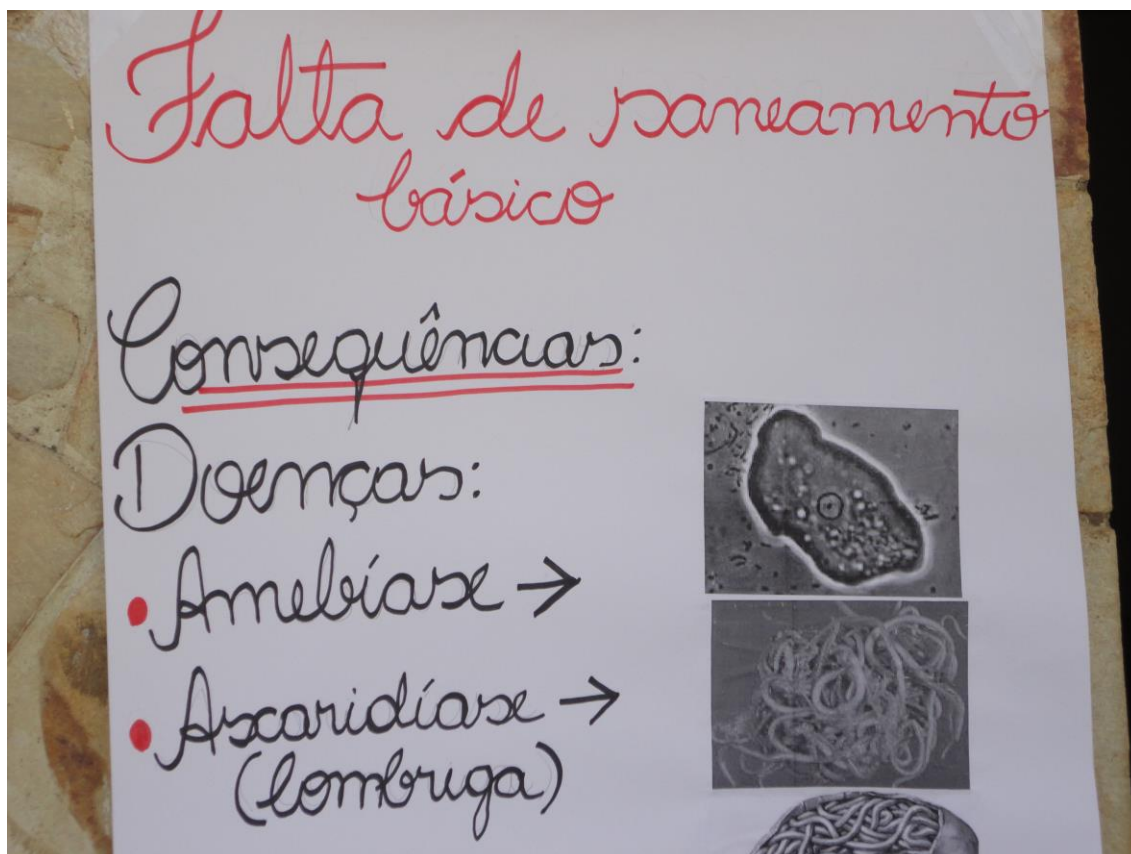 Falta de saneamento
básico
Consequências:
Doenças:
• Amebíase →
• Ascaridíase →
(lombriga)